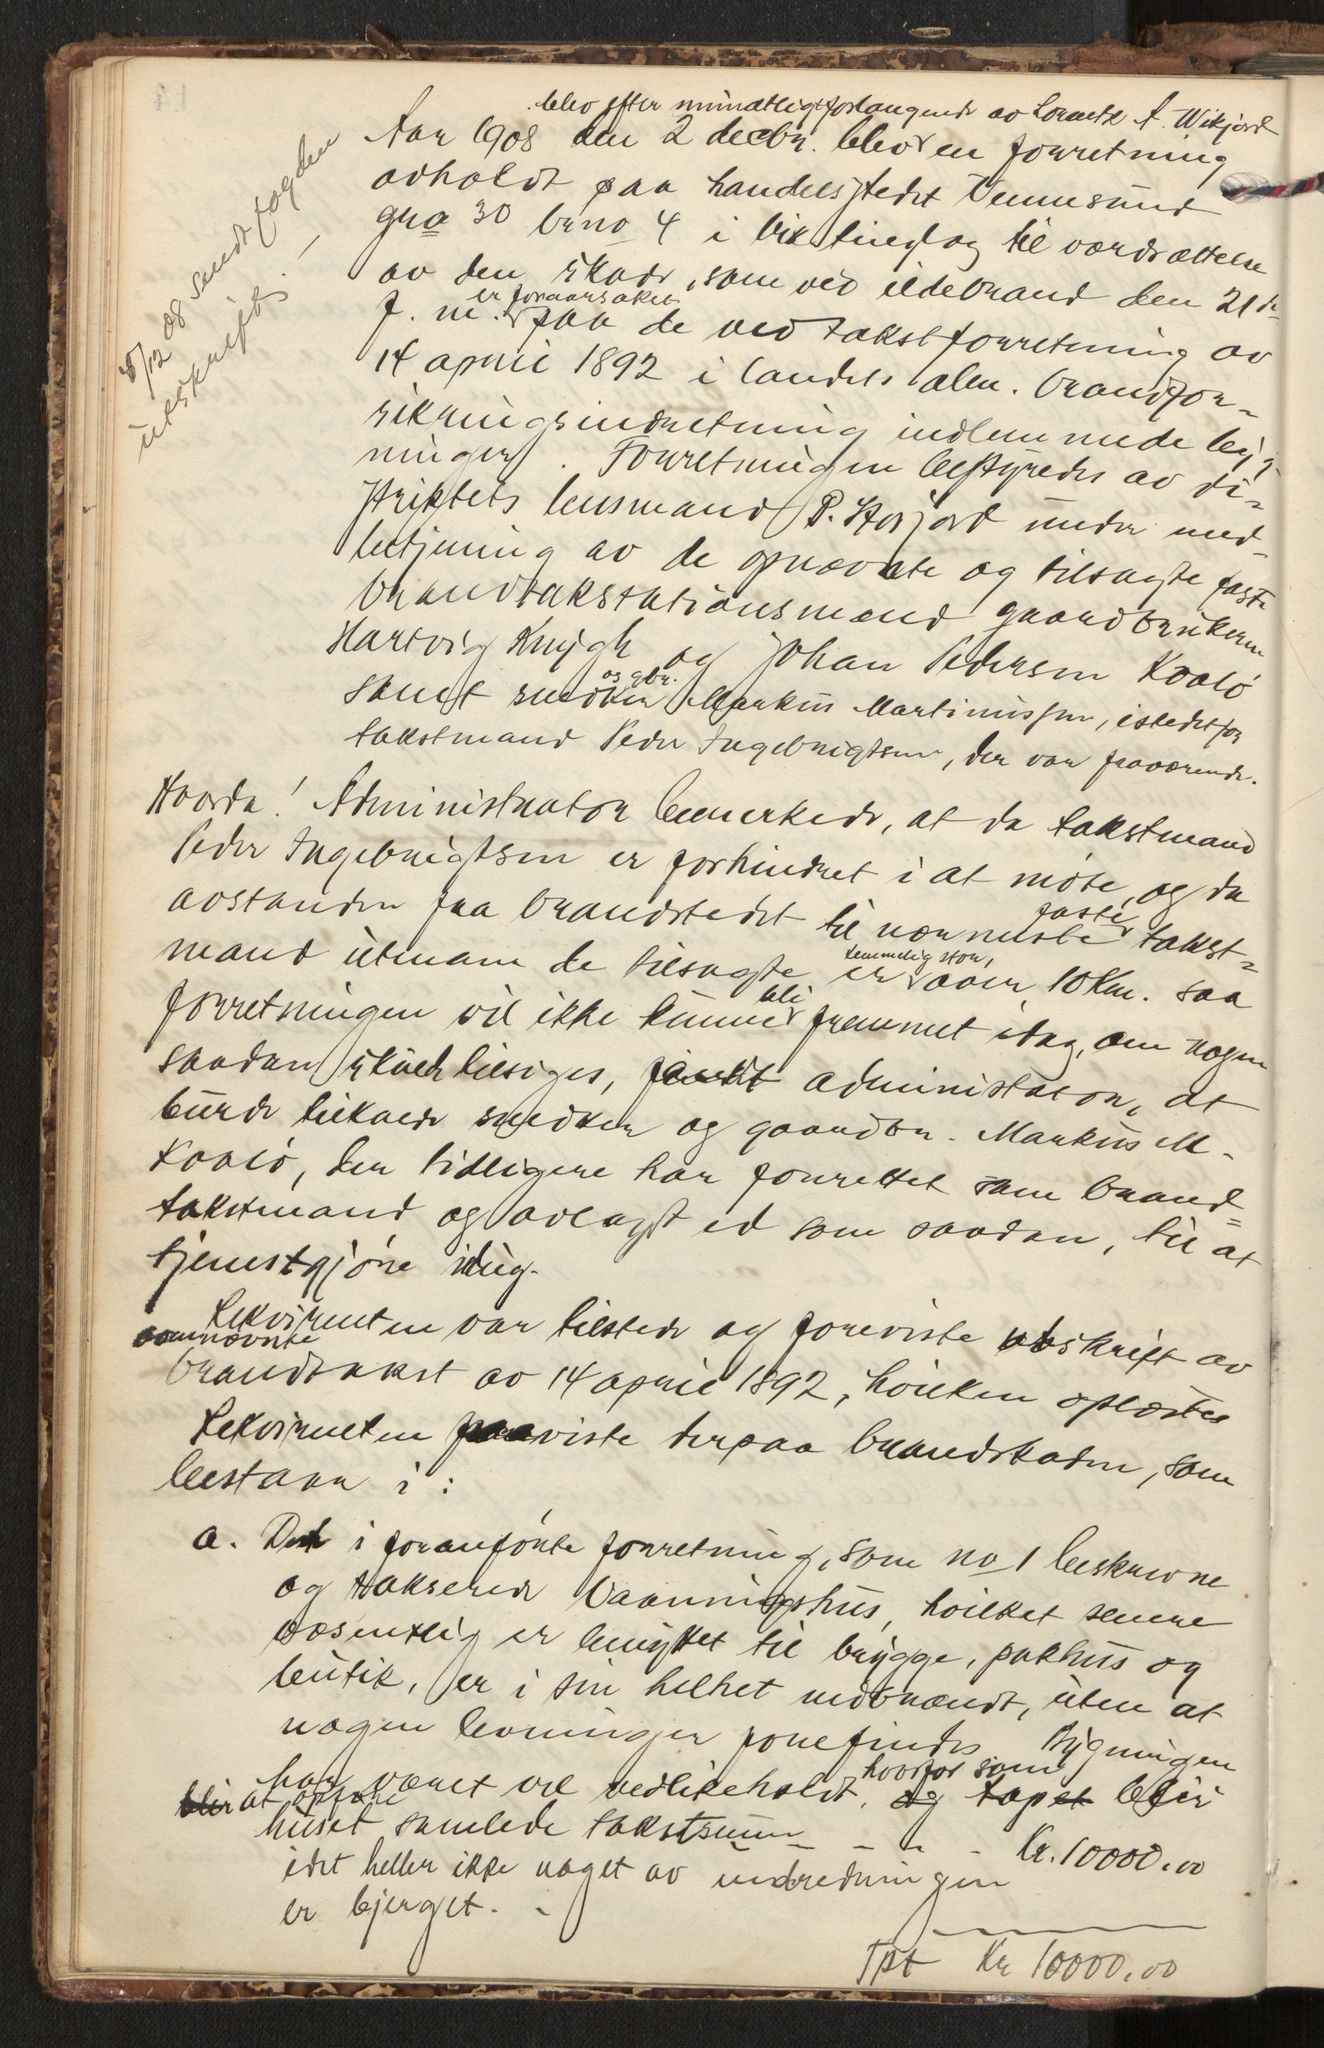 8/12 08 sendt fogden
utskrift. /
blev efter mundtlig forlangende av Lornetz A. Wikjord
Aar 1908 den 2 decbr. blev en forretning
avholdt paa handelsstedet Vennesund
gno 30 brno 4 i Vik tinglag til værdsættelse
av den skade, som ved ildebrand den 21de
f. m. er foraarsaket paa de ved takstforretning av
14 april 1892 i landets alm. brandfor-
sikringsindretning indlemmede byg-
ninger. Forretningen bestyredes av di-
striktets lensmand P. Storjord under med-
betjening av de opnævnte og tilsagte faste
brandtakstationsmænd gaardbrukerne
Hartvig Knygh og Johan Pedersen Kvalø
samt snedker og gbr. Markus Martinussen, istedetfor
takstmand Peder Ingebrigtsen, der var fraværende.
Hvorda! Administrator bemerkede, at da takstmand
Peder Ingebrigtsen er forhindret i at møte, og da
avstanden fra brandstedet til nærmeste faste takst-
mand utenom de tilsagte er temmelig stor, over 10 Km. saa
forretningen vil ikke kunne bli fremmet idag, om nogen
saadan skulde tilsiges, fandt administrator, at
burde tilkalde snedker og gaardbr. Markus M.
Kvalø, der tidligere har forrettet som brand-
takstmand og avlagt ed som saadan, til at
tjenestgjøre idag.
Rekvirenten var tilstede og foreviste utskrift av
ovennævnte
brandtakst av 14 april 1892, hvilken oplæstes
Rekvirenten paaviste derpaa brandskaden, som
bestaar i:
a. Det i foranførte forretning, som no 1 beskrevne
og takserede Vaaningshus, hvilket senere
væsentlig er benyttet til brygge, pakhus og
butik, er i sin helhet nedbrændt, uten at
nogen levninger forefindes Bygningen
har været vel vedlikeholdt, hvorfor som og tapet blir
blir at opføre
huset samlede takstsum - - - - Kr. 10000.00
idet heller ikke noget av indredningen
er bjerget. -
Tpt Kr 10000.00